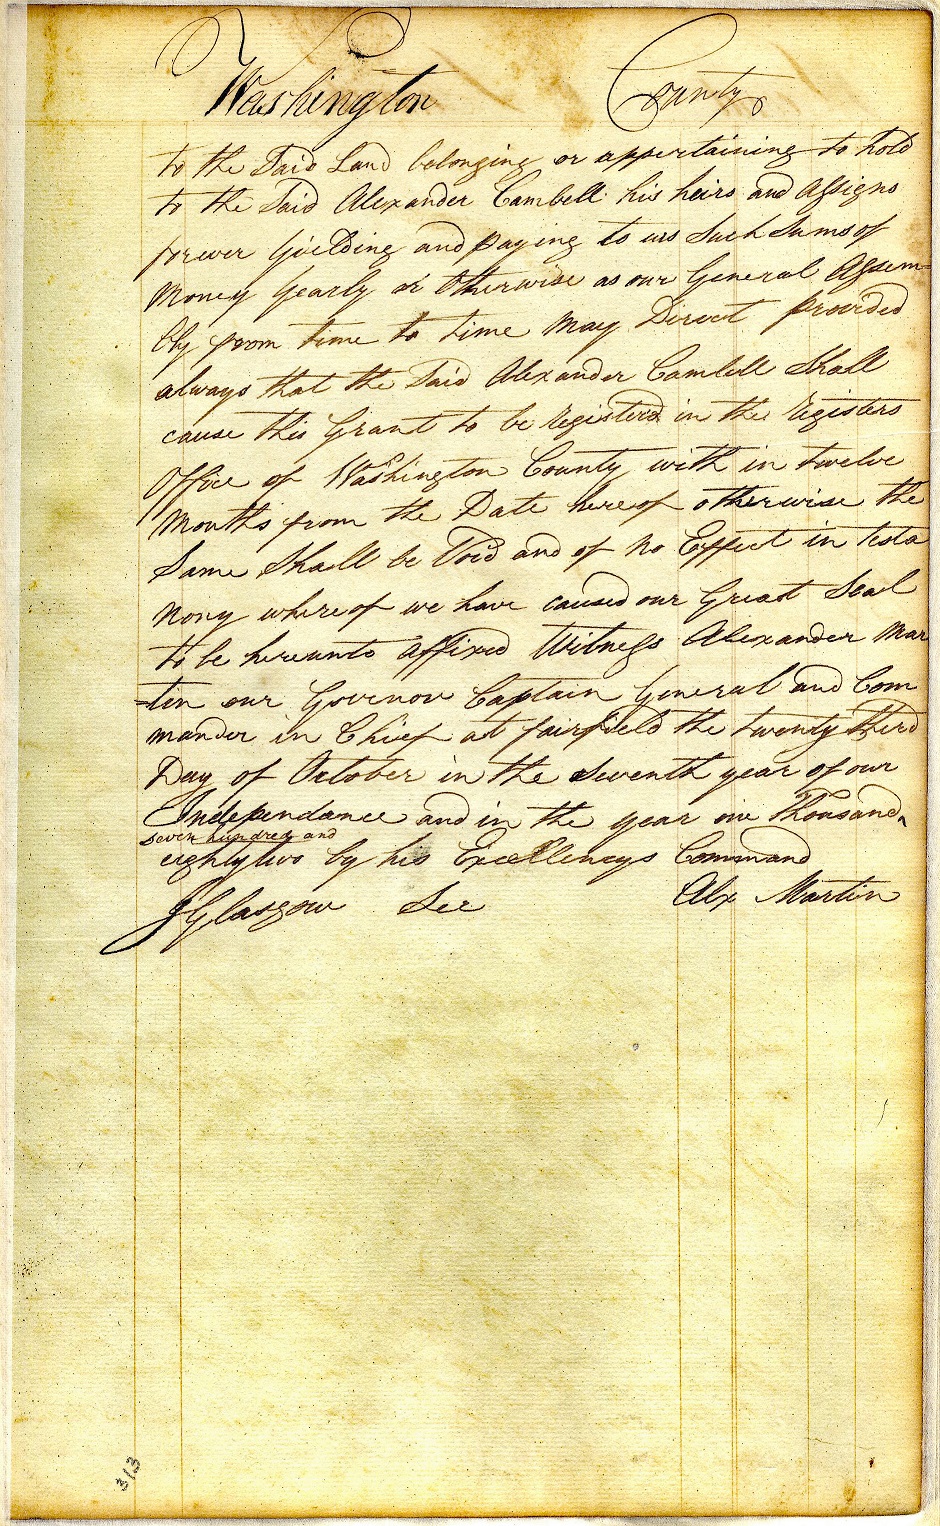 Washington County
to the Said Land belonging or appertaining to hold
to the Said Alexander Cambell his heirs and assigns
forever Yielding and paying to us Such Sums of
Money Yearly or Otherwise as our General Assem=
bly from time to time May Direct provided
always that the Said Alexander Cambell Shall
cause this Grant to be registered in the registers
Office of Washington County with in twelve
Months from the Date hereof otherwise the
Same Shall be Void and of No Effect in testa
mony whereof we have caused our Great Seal
to be hereunto affixed Witness Alexander Mar
=tin our Governor Captain General and Com
mander in Chief at fairfield the twenty third
Day of October in the Seventh year of our
Independance and in the year one Thousand
seven hundred and
eighty two by his Excellencys Command
JGlasgow Sec Alex Martin
313